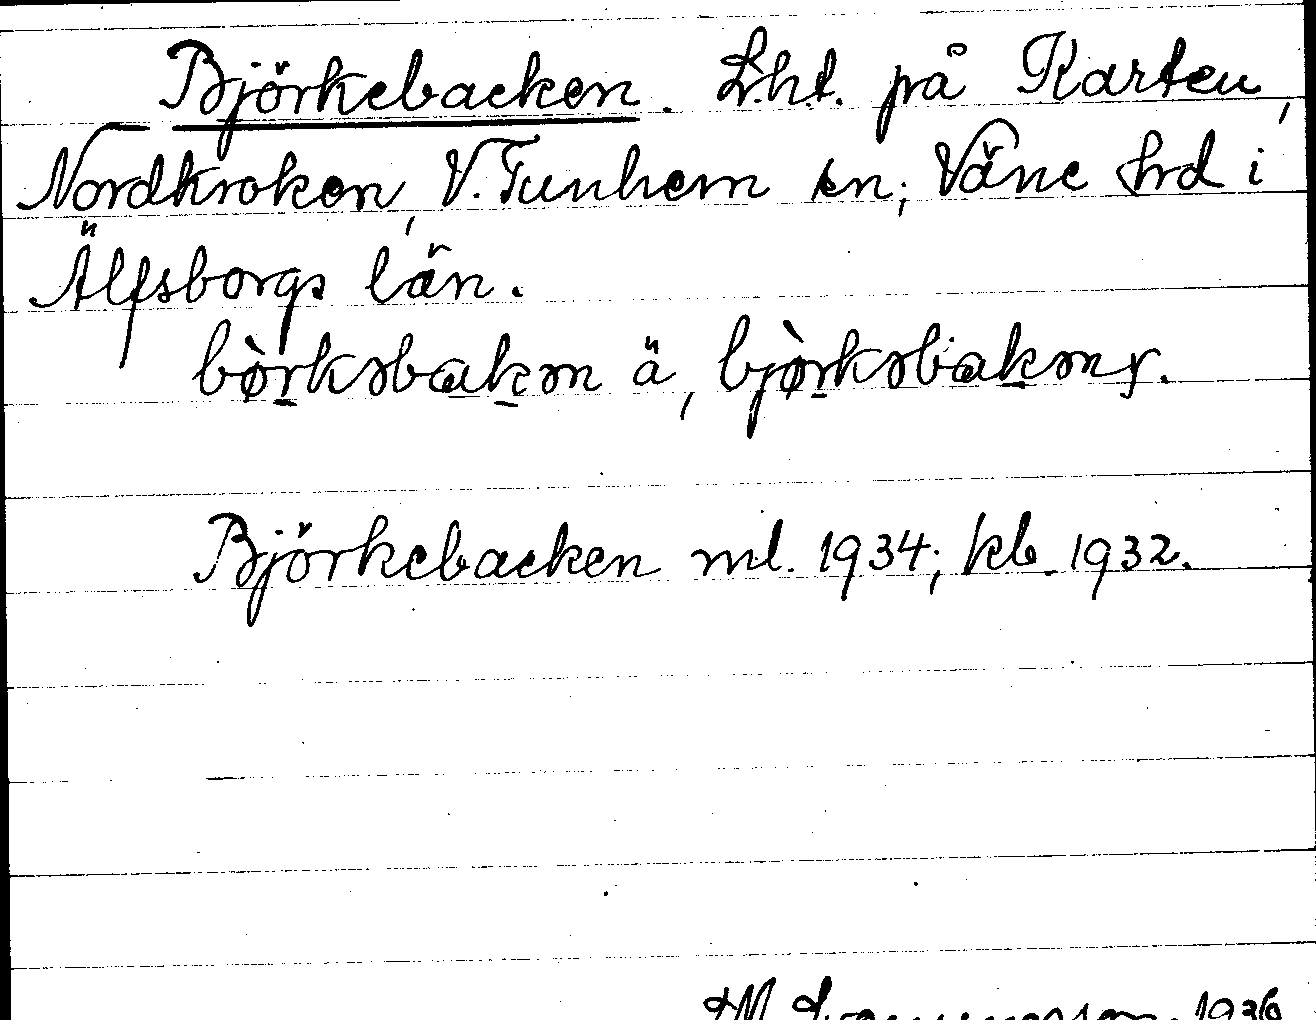 Björkebacken. L.h.t. på Karten,
Nordkroken, V. Tunhem sn; Väne hrd i
Älfsborgs län.
bø̀rkəbakən ä, bjø̀rkəbakən y.
Björkebacken ml. 1934; kb. 1932.
1936